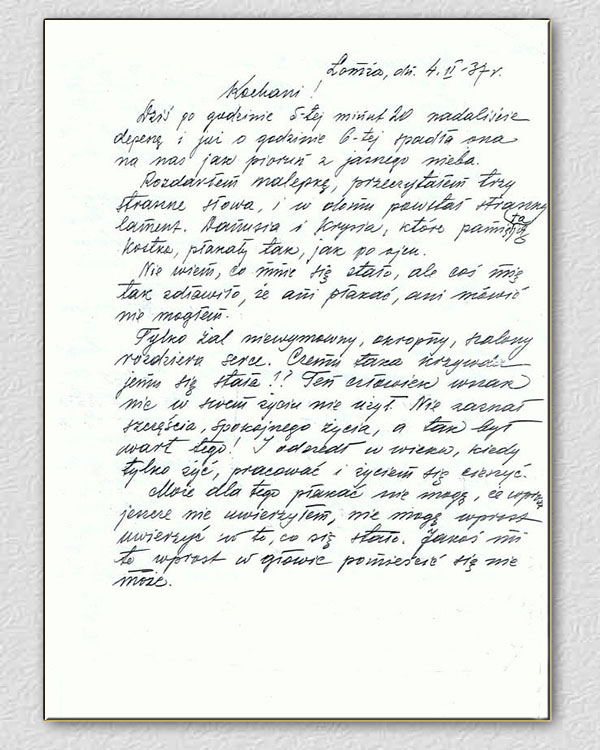 Łomża, dn. 4.II-37 r.
Kochani!
Dziś po godzinie 5-tej minut 20 nadaliście
depeszę i już o godzinie 6-tej spadła ona
na nas jak piorun z jasnego nieba.
Rozdarłem nalepkę, przeczytałem trzy
straszne słowa, i w domu powstał straszny
lament. Danusia i Krysia, które pamiętają
Kostka, płakały tak, jak po ojcu.
Nie wiem, co mnie się stało, ale coś mię
tak zdławiło, że ani płakać, ani mówić
nie mogłem.
Tylko żal niewymowny, okropny, szalony
rozdziera serce. Czemu taka krzywda
jemu się stała!? Ten człowiek wszak
nic w swem życiu nie użył. Nie zaznał
szczęścia, spokojnego życia, a tak był
wart tego! I odszedł w wieku, kiedy
tylko żyć, pracować i życiem się cieszyć.
Może dla tego płakać nie mogę, że wprost
jeszcze nie uwierzyłem, nie mogę wprost
uwierzyć w to, co się stało. Jakoś mi
to wprost w głowie pomieścić się nie
może.